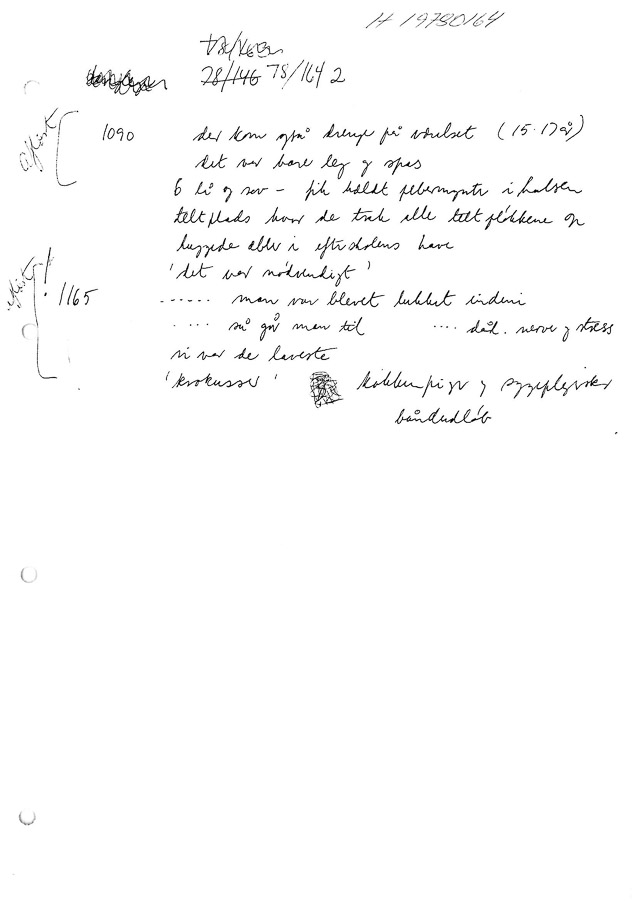 H 19780164
78/146 78/164 2
afhørt 1090 der kom også drenge på værelset (15-17 år)
det var bare leg og spas
6 lå og sov – fik hældt pebermynte i halsen
teltplads hvor de trak alle teltpløkkene op
huggede æbler i efterskolens have
'det var nødvendigt'
afhørt ! 1165 ...... man var blevet lukket inden i
.... så går man til .... død. nerve og stress
vi var de laveste
'krokusser' køkkenpiger og sygeplejersker
båndudløb